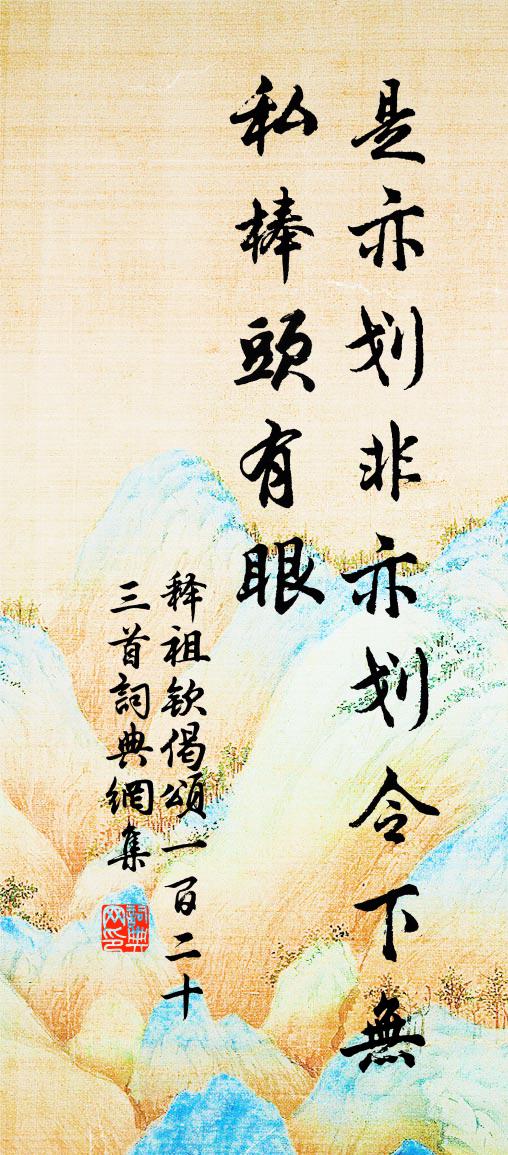 是亦划非亦划令下無
私棒頭有眼
释祖钦偈頌一百二十
三首詞典網集
詞典
网印